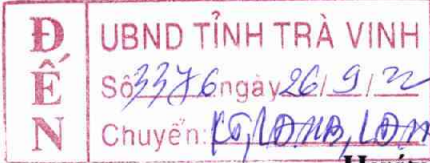 ĐẾN
UBND TỈNH TRÀ VINH
Số 3376 ngày 26/9/22
Chuyển: